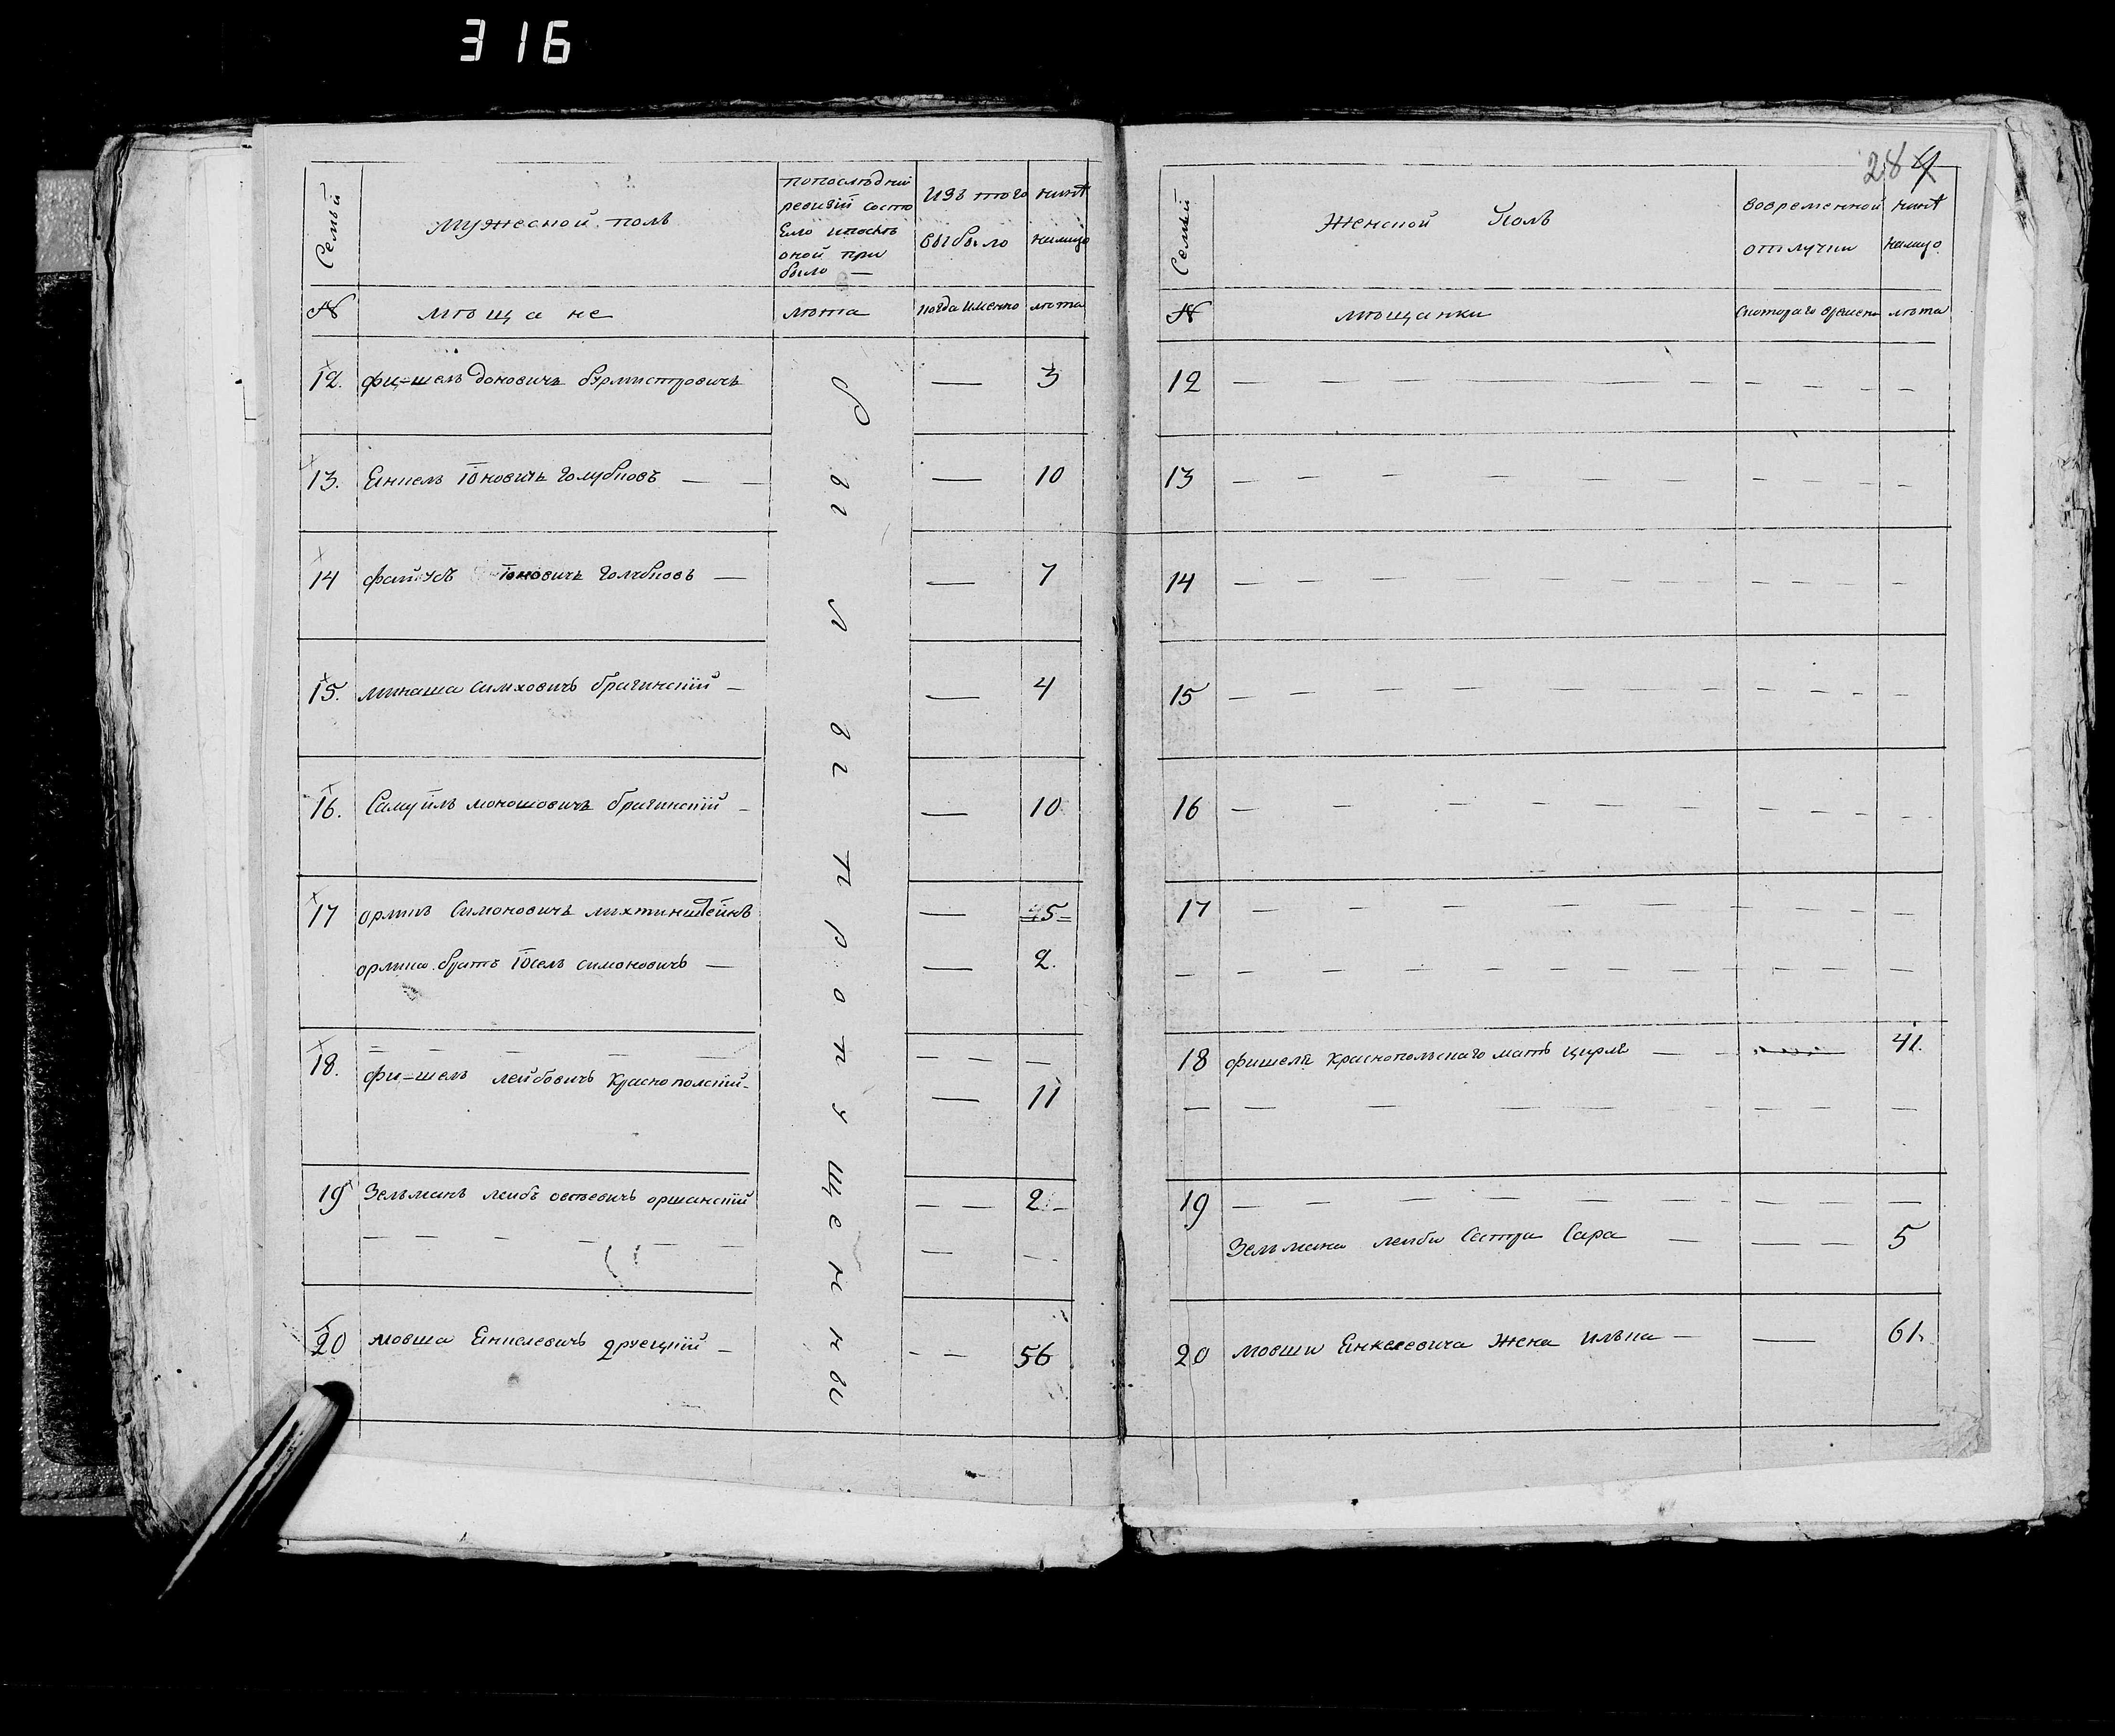 316
284
Семьи
Мужеской полъ
попоследней
ревизіи состо
яло ипосле
оной при
было —
изъ того
выбыло
ныне
налицо
№
мѣщане
лѣта
когда именно
лѣта
12. Фишель Доновичъ Бурмистровичъ — 3
13. Енкель Іоновичъ Голубковъ — — — 10
14 Файтель Іоновичъ Голубковъ — — 7
15. Минаша Симховичъ Брагинскій — — 4
16. Самуйлъ Моношовичъ Брагинскій — — 10
17 Оркинъ Симоновичъ Лихтинштейнъ — 5
Оркина братъ Іосель Симоновичъ — — 2.
18. Фишель Лейбовичъ Краснополскій — — 11
19 Зельманъ Лейбъ Овсѣевичъ Оршанскій — — 2
20 Мовша Енкелевичъ Друецкій — — — 56
были пропущенны
Семьи
Женской Полъ
вовременной
отлучки
ныне
налицо
№
мѣщанки
скотораго времени
лѣта
12
13
14
15
16
17
18 Фишеля Краснопольскаго мать Цирля — 41.
19
Зельмана Лейбы Сестра Сара — 5
20 Мовши Енкелевича жена Илька — — 61.